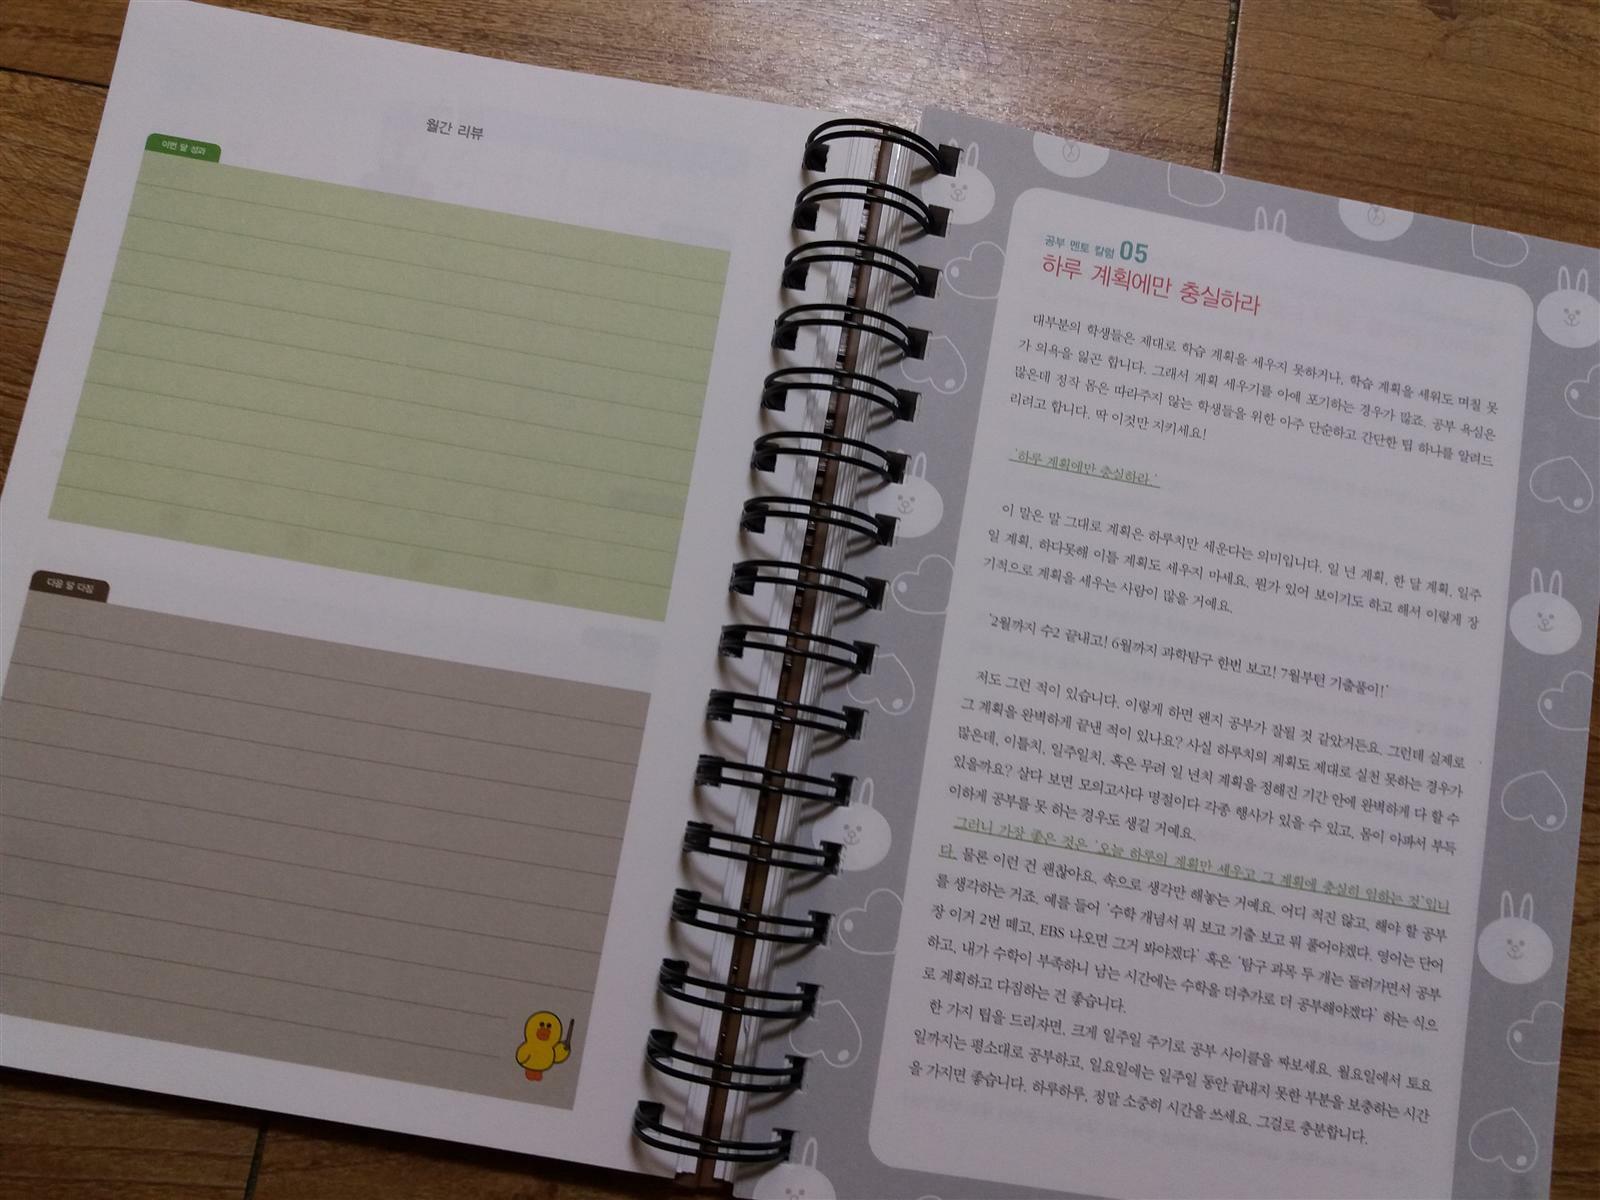 월간 리뷰
이번 달 성과
다음 달 다짐
공부 멘토 칼럼 05
하루 계획에만 충실하라
대부분의 학생들은 제대로 학습 계획을 세우지 못하거나, 학습 계획을 세워도 며칠 못
가 의욕을 잃곤 합니다. 그래서 계획 세우기를 아예 포기하는 경우가 많죠. 공부 욕심은
많은데 정작 몸은 따라주지 않는 학생들을 위한 아주 단순하고 간단한 팁 하나를 알려드
리려고 합니다. 딱 이것만 지키세요!
'하루 계획에만 충실하라.'
이 말은 말 그대로 계획은 하루치만 세운다는 의미입니다. 일 년 계획, 한 달 계획, 일주
일 계획, 하다못해 이틀 계획도 세우지 마세요. 뭔가 있어 보이기도 하고 해서 이렇게 장
기적으로 계획을 세우는 사람이 많을 거예요.
'2월까지 수2 끝내고! 6월까지 과학탐구 한번 보고! 7월부턴 기출풀이!'
저도 그런 적이 있습니다. 이렇게 하면 왠지 공부가 잘될 것 같았거든요. 그런데 실제로
그 계획을 완벽하게 끝낸 적이 있나요? 사실 하루치의 계획도 제대로 실천 못하는 경우가
많은데, 이틀치, 일주일치, 혹은 무려 일 년치 계획을 정해진 기간 안에 완벽하게 다 할 수
있을까요? 살다 보면 모의고사다 명절이다 각종 행사가 있을 수 있고, 몸이 아파서 부득
이하게 공부를 못 하는 경우도 생길 거예요.
그러니 가장 좋은 것은 '오늘 하루의 계획만 세우고 그 계획에 충실히 임하는 것'입니
다. 물론 이런 건 괜찮아요. 속으로 생각만 해놓는 거예요. 어디 적진 않고, 해야 할 공부
를 생각하는 거죠. 예를 들어 '수학 개념서 뭐 보고 기출 보고 뭐 풀어야겠다. 영어는 단어
장 이거 2번 떼고, EBS 나오면 그거 봐야겠다' 혹은 '탐구 과목 두 개는 돌려가면서 공부
하고, 내가 수학이 부족하니 남는 시간에는 수학을 더추가로 더 공부해야겠다' 하는 식으
로 계획하고 다짐하는 건 좋습니다.
한 가지 팁을 드리자면, 크게 일주일 주기로 공부 사이클을 짜보세요. 월요일에서 토요
일까지는 평소대로 공부하고, 일요일에는 일주일 동안 끝내지 못한 부분을 보충하는 시간
을 가지면 좋습니다. 하루하루, 정말 소중히 시간을 쓰세요. 그걸로 충분합니다.